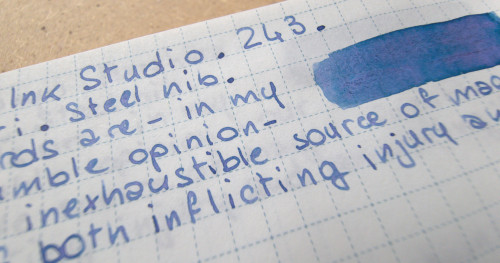 Ink Studio. 243.
. Steel nib.
are - in my
opinion -
inexhaustible source of
both inflicting injury